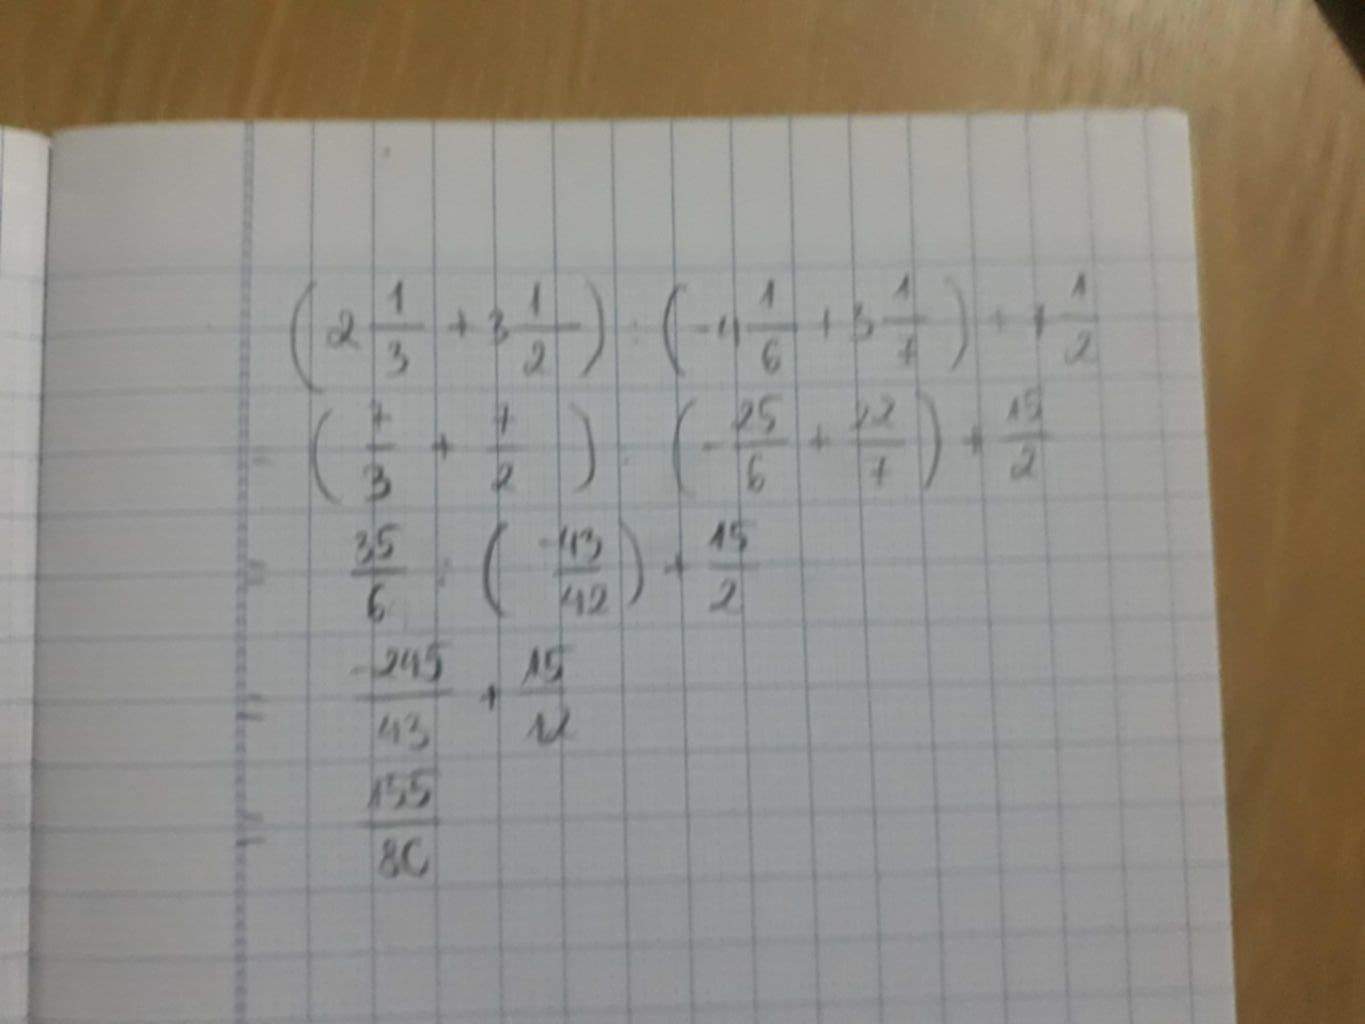 (2 1/3 + 3 1/2) : (-4 1/6 + 3 1/7) + 7 1/2
= (7/3 + 7/2) : (-25/6 + 22/7) + 15/2
= 35/6 : (-43/42) + 15/2
= -245/43 + 15/2
= 155/86